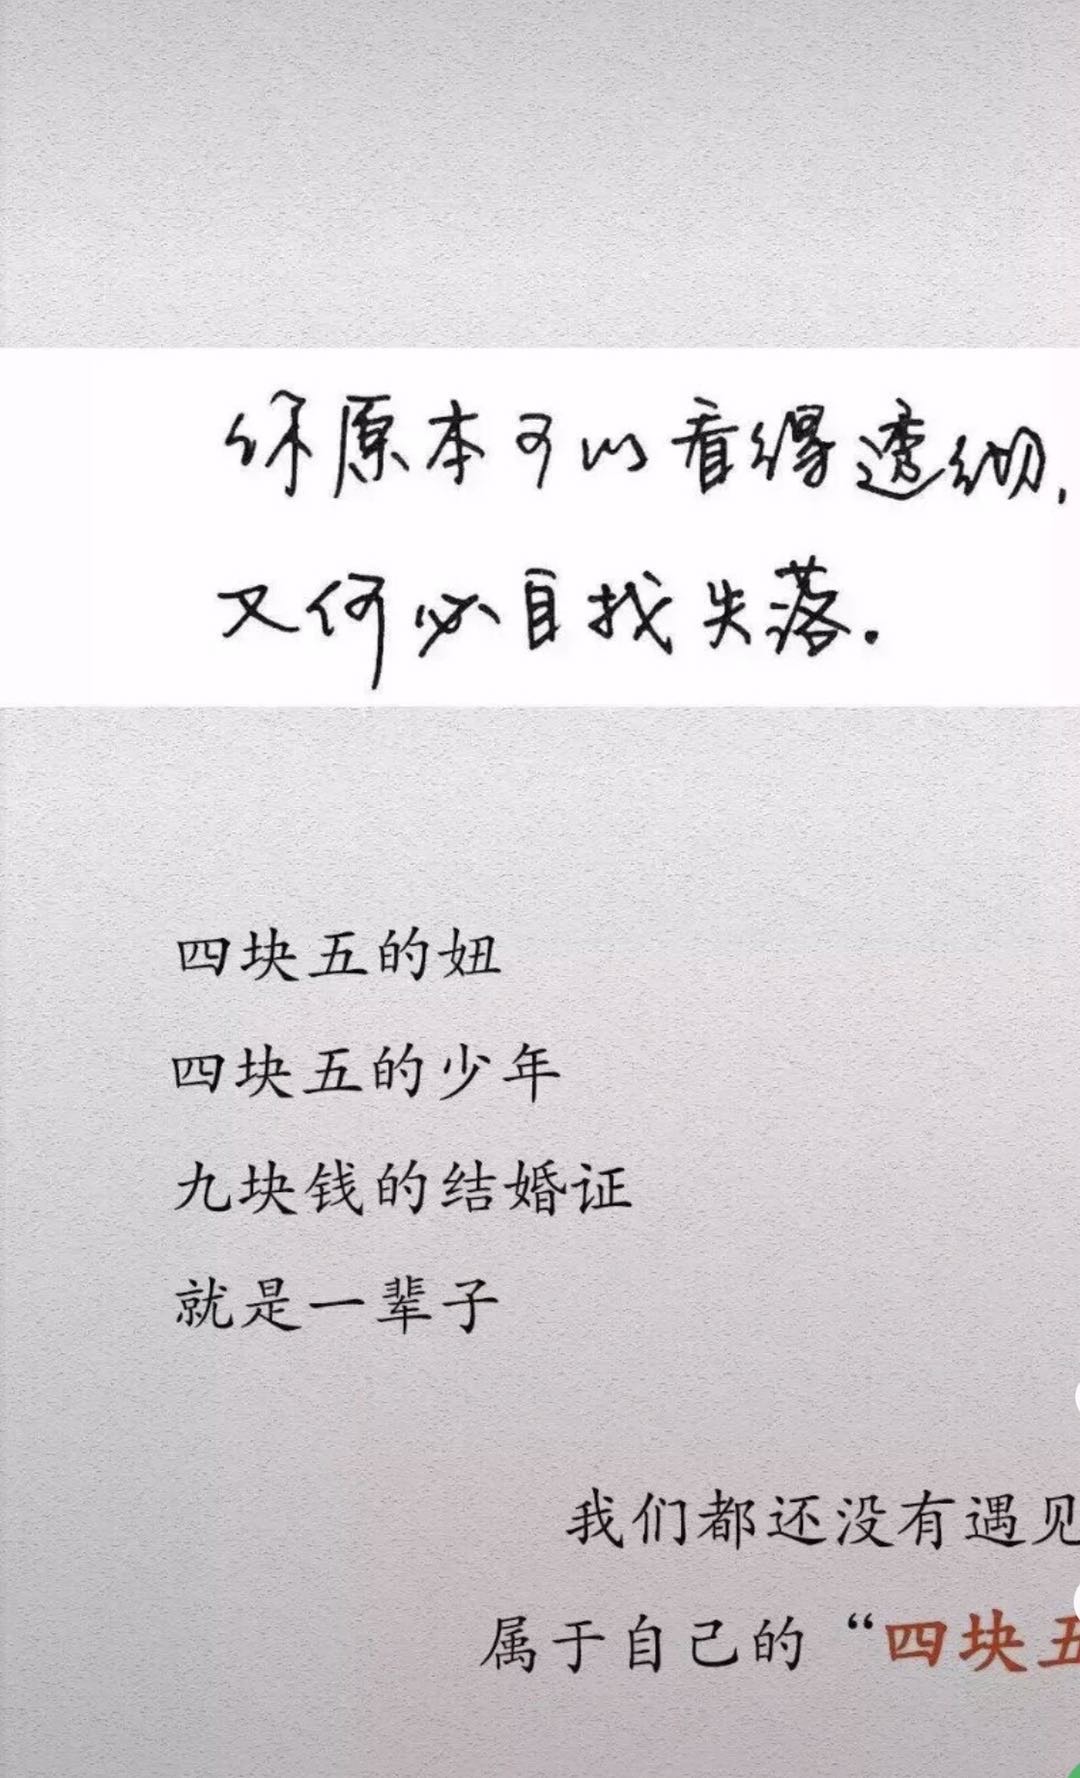 你原本可以看得透彻,
又何必自找失落.
四块五的妞
四块五的少年
九块钱的结婚证
就是一辈子
我们都还没有遇见
属于自己的“四块五